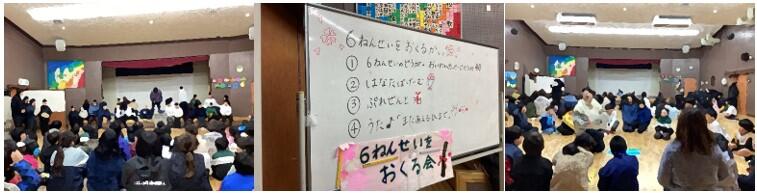 6ねんせいをおくるかい
① 6ねんせいのどうが
② はなたばげーむ
③ ぷれぜんと
④ うた♪「またあえる日まで」
6ねんせいを
おくる会